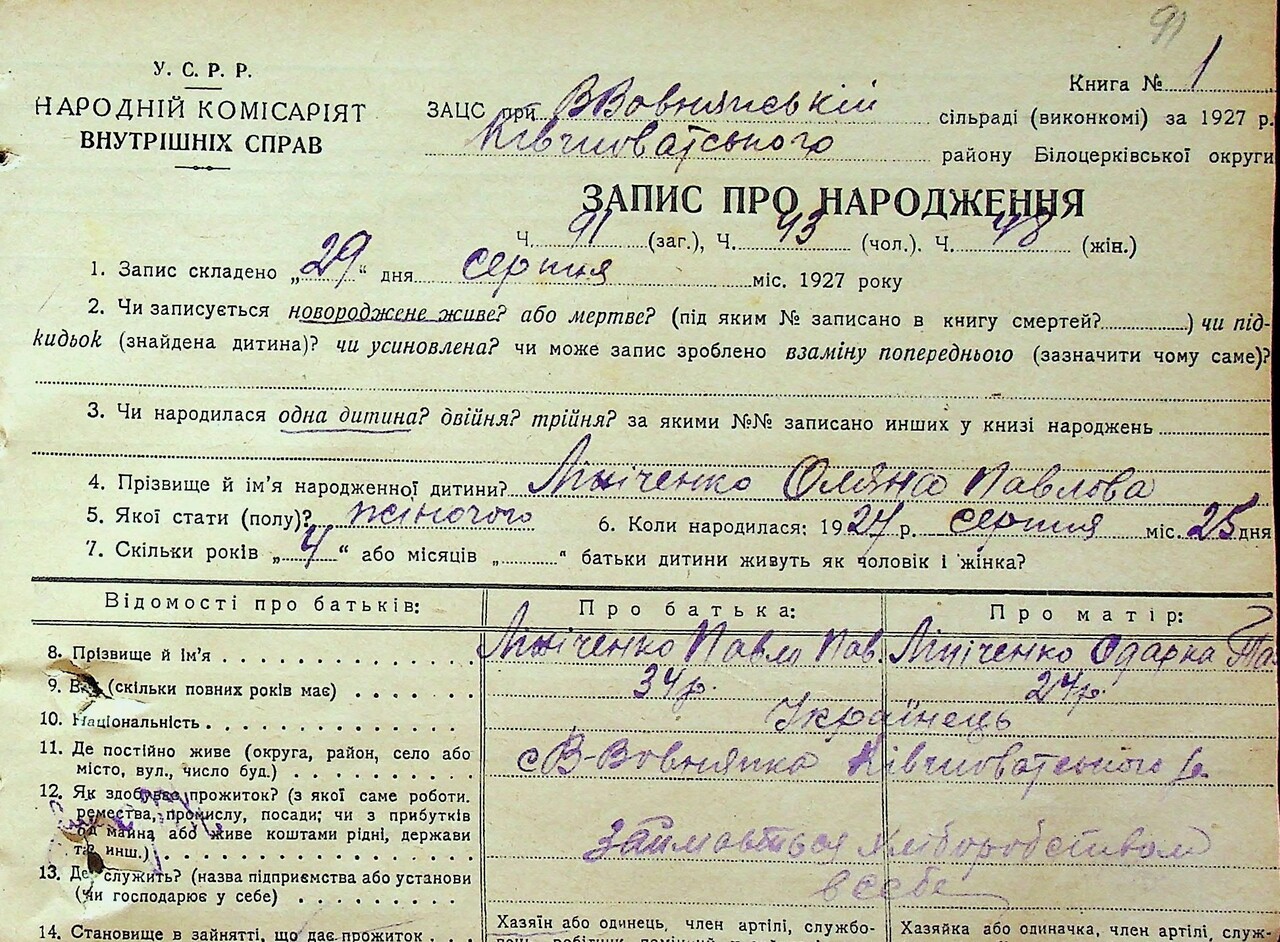 91
У. С. Р. Р.
НАРОДНІЙ КОМІСАРІЯТ
ВНУТРІШНІХ СПРАВ
Книга № 1
ЗАЦС при ВВовнянській сільраді (виконкомі) за 1927 р.
Ківшоватського району Білоцерківської округи
ЗАПИС ПРО НАРОДЖЕННЯ
Ч. 91 (заг.), Ч. 43 (чол.). Ч. 48 (жін.)
1. Запис складено „29“ дня серпня міс. 1927 року
2. Чи записується новороджене живе? або мертве? (під яким № записано в книгу смертей?) чи під-
кидьок (знайдена дитина)? чи усиновлена? чи може запис зроблено взаміну попереднього (зазначити чому саме)?
3. Чи народилася одна дитина? двійня? трійня? за якими №№ записано инших у книзі народжень
4. Прізвище й ім’я народженної дитини? Лініченко Оляна Павлова
5. Якої стати (полу)? жіночого 6. Коли народилася: 1927 р. серпня міс. 25 дня
7. Скільки років „4“ або місяців „ “ батьки дитини живуть як чоловік і жінка?
Відомості про батьків: Про батька: Про матір:
8. Прізвище й ім’я Лініченко Павло Пав. Лініченко Одарка
9. Вік (скільки повних років має) 34 р. 24 р.
10. Національність Українець
11. Де постійно живе (округа, район, село або
місто, вул., число буд.) с В-Вовнянка Ківшоватського р.
12. Як здобуває прожиток? (з якої саме роботи.
ремества, промислу, посади; чи з прибутків
од майна або живе коштами рідні, держави
та инш.) Займається хліборобством
13. Де служить? (назва підприємства або установи
(чи господарює у себе) в себе
14. Становище в зайнятті, що дає прожиток
Хазяїн або одинець, член артілі, службо-
Хазяйка або одиначка, член артілі, служ-